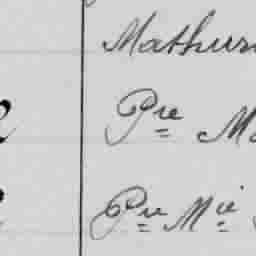 Mathuri
Pre Ma
Pre Mie